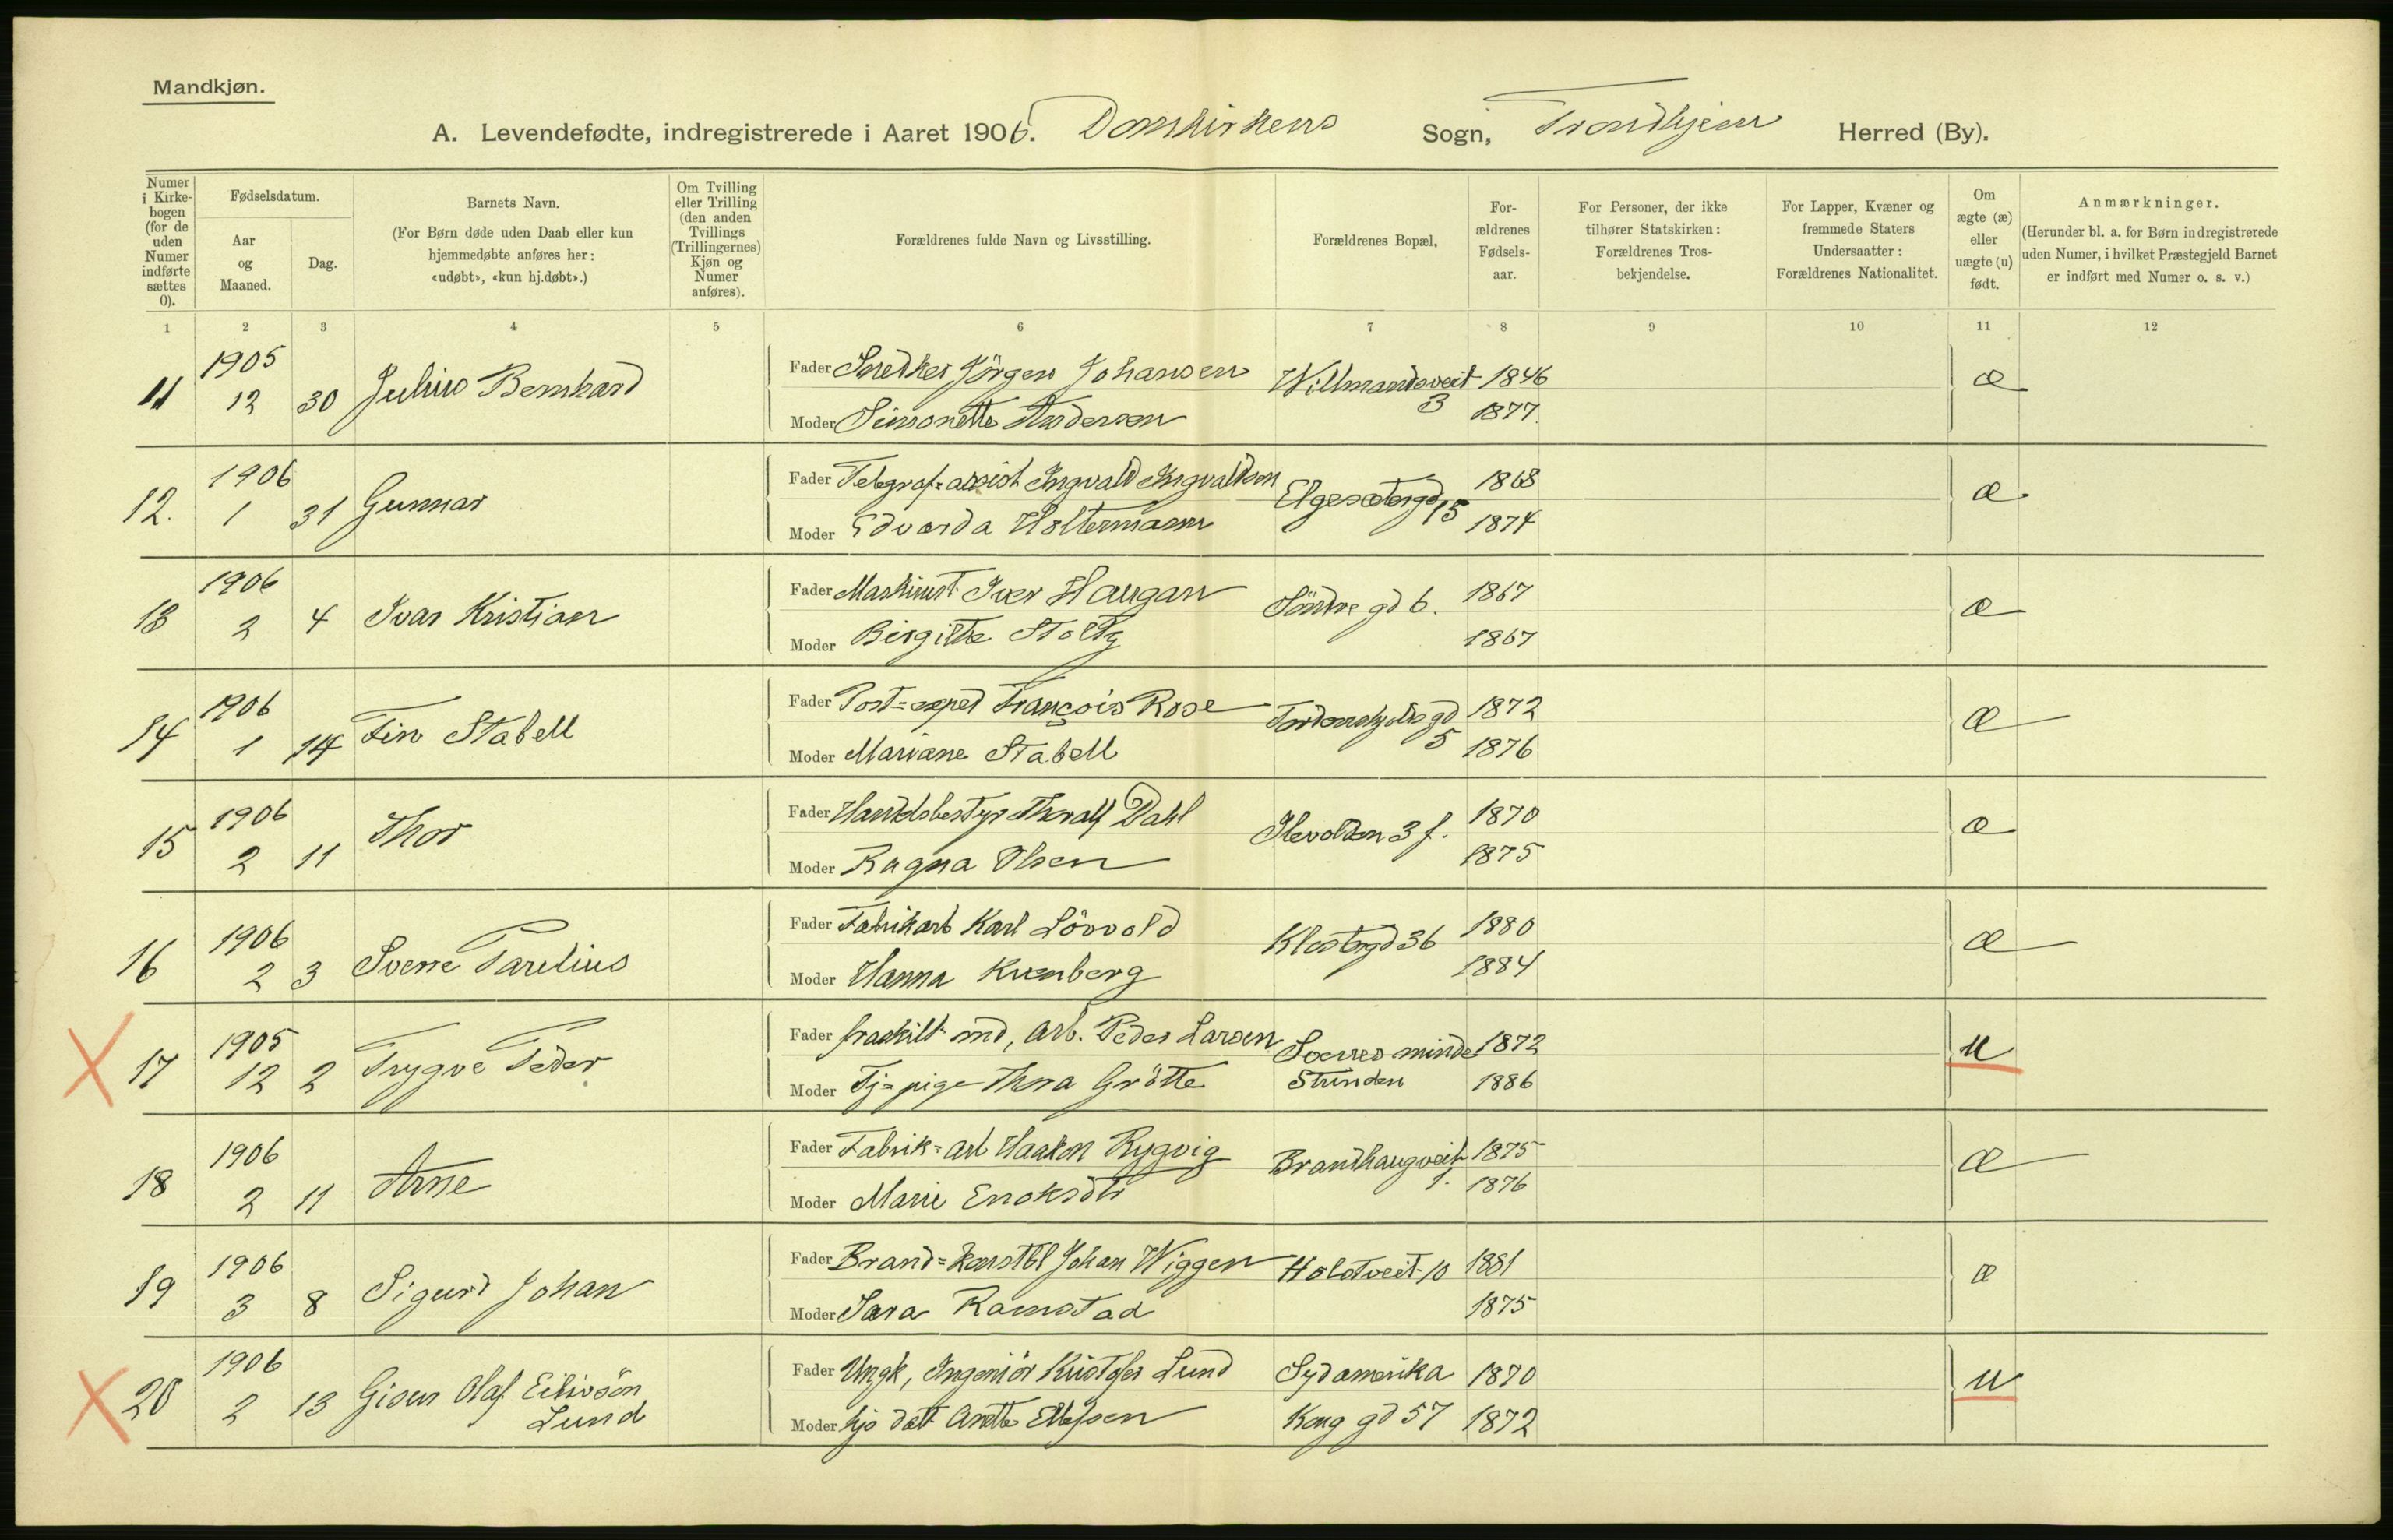 Mandkjøn.
A. Levendefødte, indregistrerede i Aaret 1906. Domkirkens Sogn, Trondhjem Herred (By).
Numer i Kirkebogen (for de uden Numer indførte sættes 0).
Fødselsdatum.
Aar og Maaned.
Dag.
Barnets Navn.
(For Børn døde uden Daab eller kun hjemmedøbte anføres her: «udøbt», «kun hj.døbt».)
Om Tvilling eller Trilling (den anden Tvillings (Trillingernes) Kjøn og Numer anføres).
Forældrenes fulde Navn og Livsstilling.
Forældrenes Bopæl,
Forældrenes Fødselsaar.
For Personer, der ikke tilhører Statskirken: Forældrenes Trosbekjendelse.
For Lapper, Kvæner og fremmede Staters Undersaatter: Forældrenes Nationalitet.
Om ægte (æ) eller uægte (u) født.
Anmærkninger.
(Herunder bl. a. for Børn indregistrerede uden Numer, i hvilket Præstegjeld Barnet er indført med Numer o. s. v.)
1 2 3 4 5 6 7 8 9 10 11 12
11 1905 12 30 Julius Bernhard
Fader Snedker Jörgen Johansen Willmandsveit 3 1846 æ
Moder Simonette Andersen 1877.
12. 1906 1 31 Gunnar
Fader Telegraf=assist Ingvald Ingvaldsen Elgesætergd 15 1868 æ
Moder Edvarda Holtermann 1874
13 1906 2 4 Ivar Kristian
Fader Maskinist Iver Haugan Söndre gd 6. 1867 æ
Moder Birgitte Stoltz 1867
14 1906 1 14 Fin Stabell
Fader Post=exped François Rose Tordenskjolds gd 5 1872 æ
Moder Mariane Stabell 1876
15 1906 2 11 Thor
Fader Handelsbestyr Thoralf Dahl Ilevolden 3 f. 1870 æ
Moder Ragna Olsen 1875
16 1906 2 3 Sverre Parelius
Fader Fabrikarb Karl Lövvold Klostergd 36 1880 æ
Moder Hanna Kvenberg 1884
17 1905 12 2 Trygve Peder
Fader fraskilt md, Arb. Peder Larsen Sverres minde 1872 u
Moder Tj=pige Thora Grötte Strinden 1886
18 1906 2 11 Arne
Fader Fabrik=arb Haakon Rygvig Brandhaugveit 1. 1875 æ
Moder Marie Enoksdtr 1876
19 1906 3 8 Sigurd Johan
Fader Brand=konstbl Johan Wiggen Holstveit 10 1881 æ
Moder Sara Ramstad 1875
20 1906 2 13 Gisur Olaf Eilivsön Lund
Fader Ungk, Ingeniör Kristofer Lund Sydamerika 1870 u
Moder hjv datt Anette Ellefsen Kong gd 57 1872